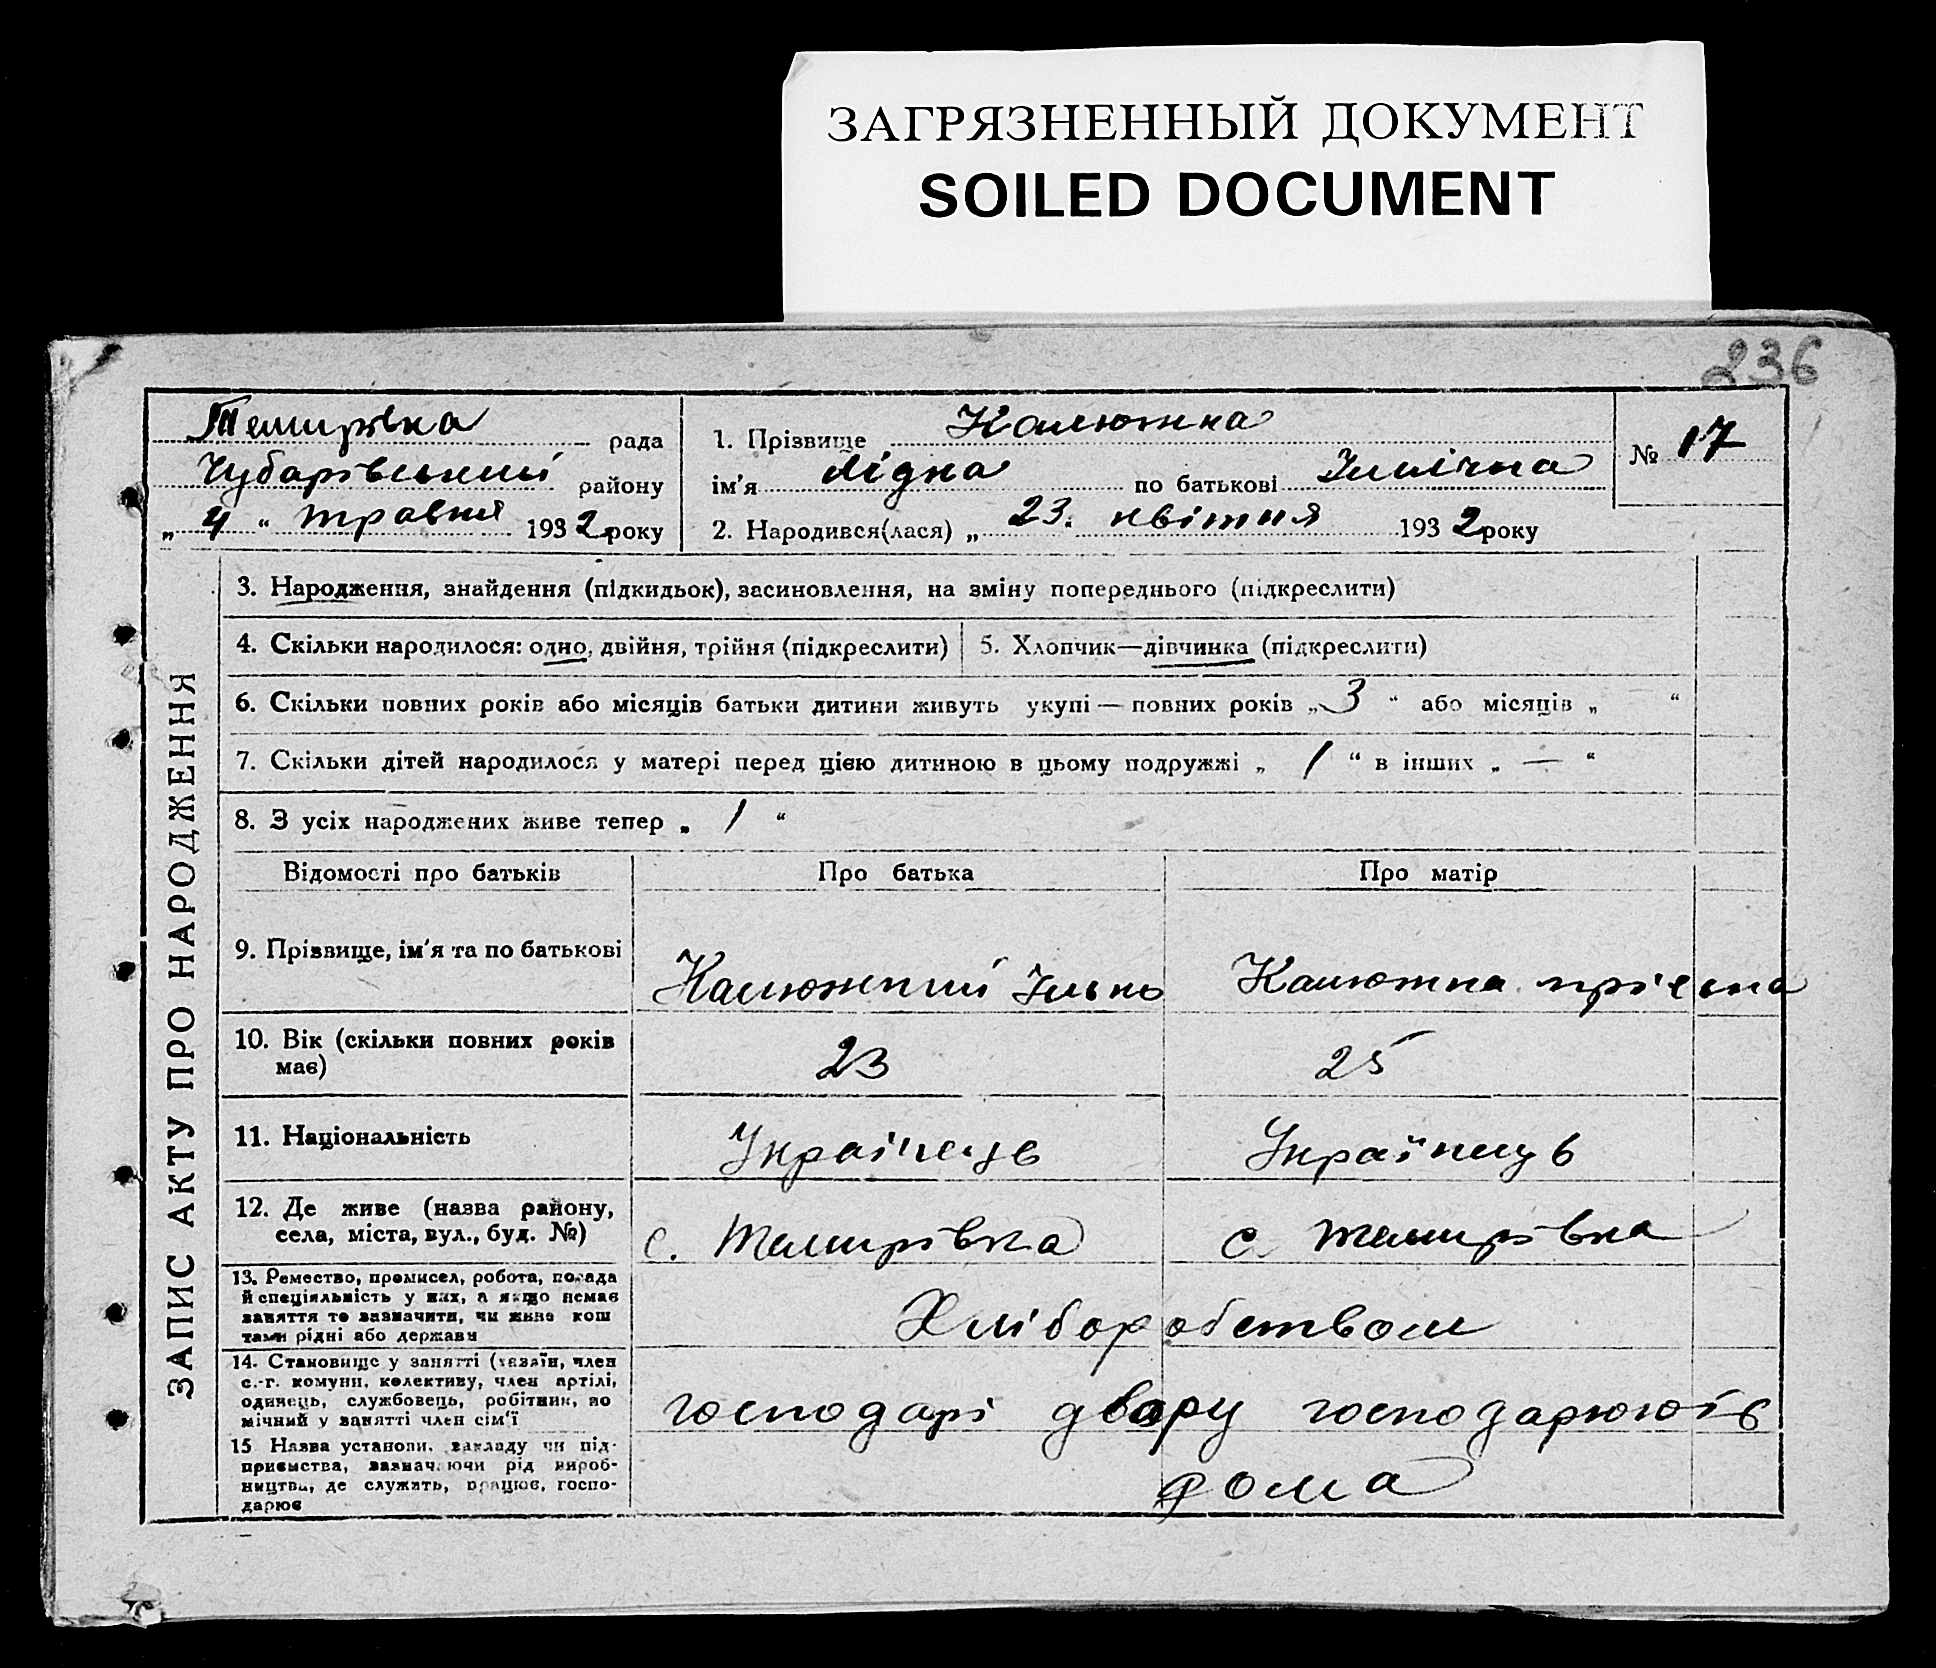 ЗАГРЯЗНЕННЫЙ ДОКУМЕНТ
SOILED DOCUMENT
236
Темирівка рада
Чубарівський району
„ 4 “ травня 1932 року
1. Прізвище Калюжна
ім'я Лідна по батькові Іллічна
2. Народився(лася) „ 23. квітня 1932 року
№ 17
ЗАПИС АКТУ ПРО НАРОДЖЕННЯ
3. Народження, знайдення (підкидьок), засиновлення, на зміну попереднього (підкреслити)
4. Скільки народилося: одно, двійня, трійня (підкреслити)
5. Хлопчик—дівчинка (підкреслити)
6. Скільки повних років або місяців батьки дитини живуть укупі — повних років „ 3 “ або місяців „ “
7. Скільки дітей народилося у матері перед цією дитиною в цьому подружжі „ 1 “ в інших „ — “
8. З усіх народжених живе тепер „ 1 “
Відомості про батьків Про батька Про матір
9. Прізвище, ім'я та по батькові Калюжний Ілько Калюжна
10. Вік (скільки повних років
має) 23 25
11. Національність Українець Українець
12. Де живе (назва району,
села, міста, вул., буд. №) с. Темирівка с. Темирівка
13. Ремество, промисел, робота, посада
й спеціяльність у них, а якщо немає
заняття то зазначити, чи живе кош
тами рідні або держави
Хліборобством
14. Становище у занятті (хазяїн, член
с.-г. комуни, колективу, член артілі,
одинець, службовець, робітник, по
мічний у занятті член сім'ї
господарі двору господарюють
15 Назва установи, закладу чи під-
приємства, зазначаючи рід вироб-
ництва, де служить, працює, госпо-
дарює
дома